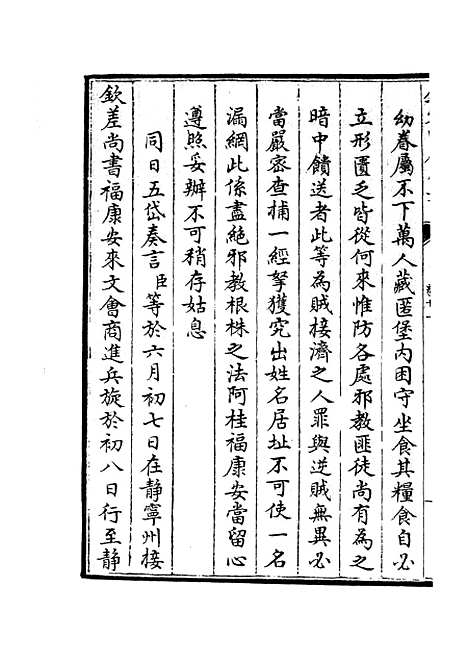 幼眷屬不下萬人藏匿堡内困守坐食其糧食自必
立形匱乏皆從何來惟防各處邪教匪徒尚有為之
暗中饋送者此等為賊接濟之人罪與逆賊無異必
當嚴密查捕一經拏獲究出姓名居址不可使一名
漏網此係盡絕邪教根株之法阿桂福康安當留心
遵照妥辦不可稍存姑息
同日五岱奏言臣等於六月初七日在靜寧州接
欽差尚書福康安來文會商進兵旋於初八日行至靜